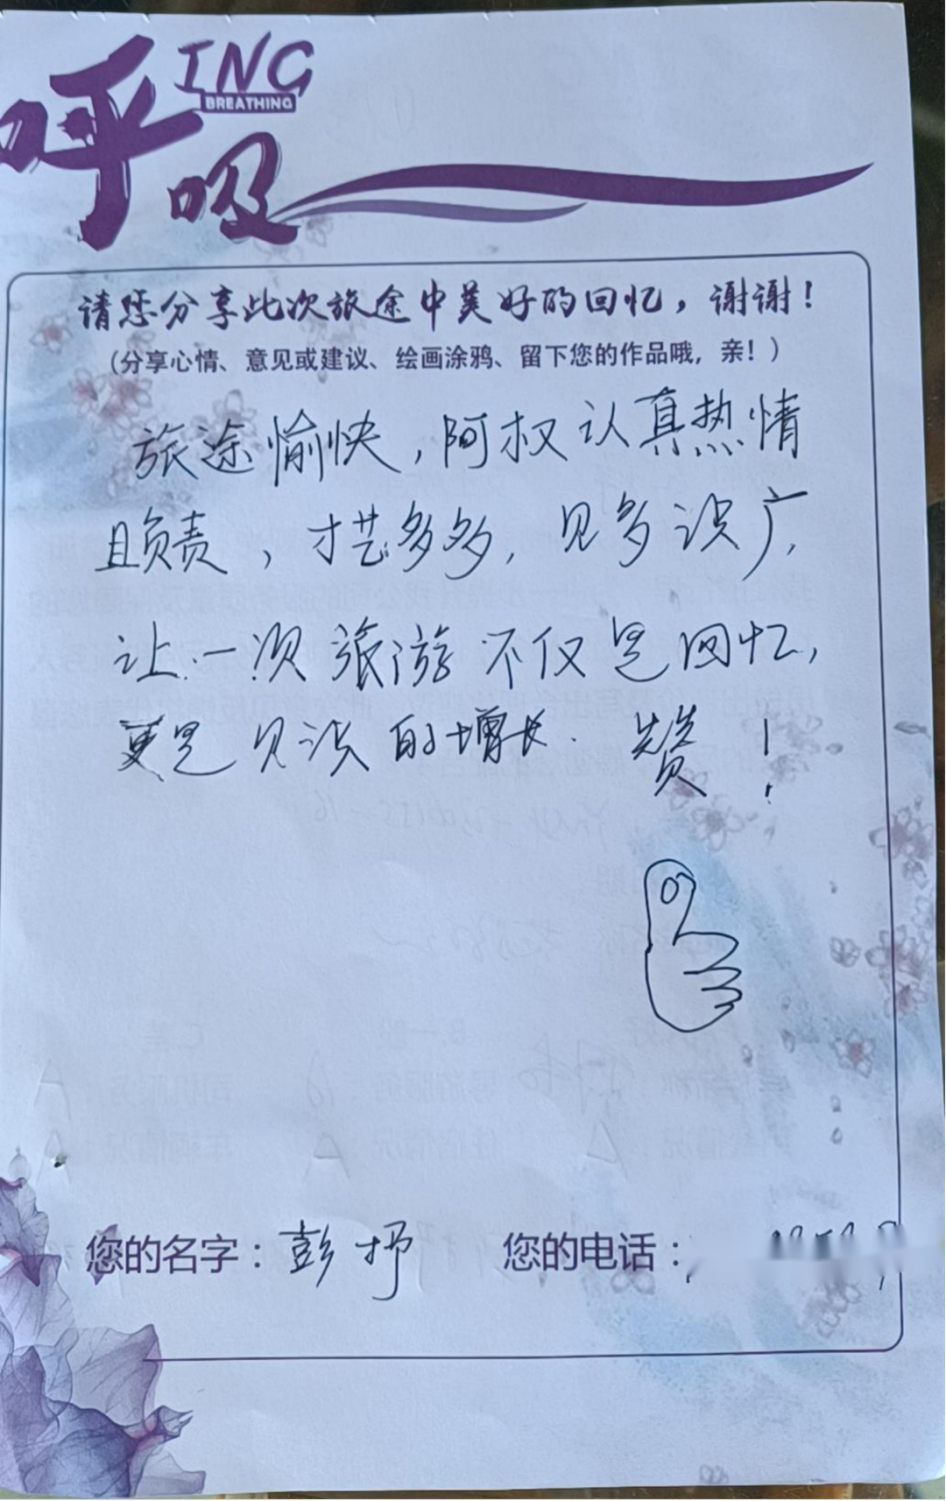 呼ING
BREATHING
吸
请您分享此次旅途中美好的回忆，谢谢！
（分享心情、意见或建议、绘画涂鸦、留下您的作品哦，亲！）
旅途愉快，阿权认真热情
且负责，才艺多多，见多识广，
让一次旅游不仅是回忆，
更是见识的增长．赞！
您的名字：彭抒 您的电话：